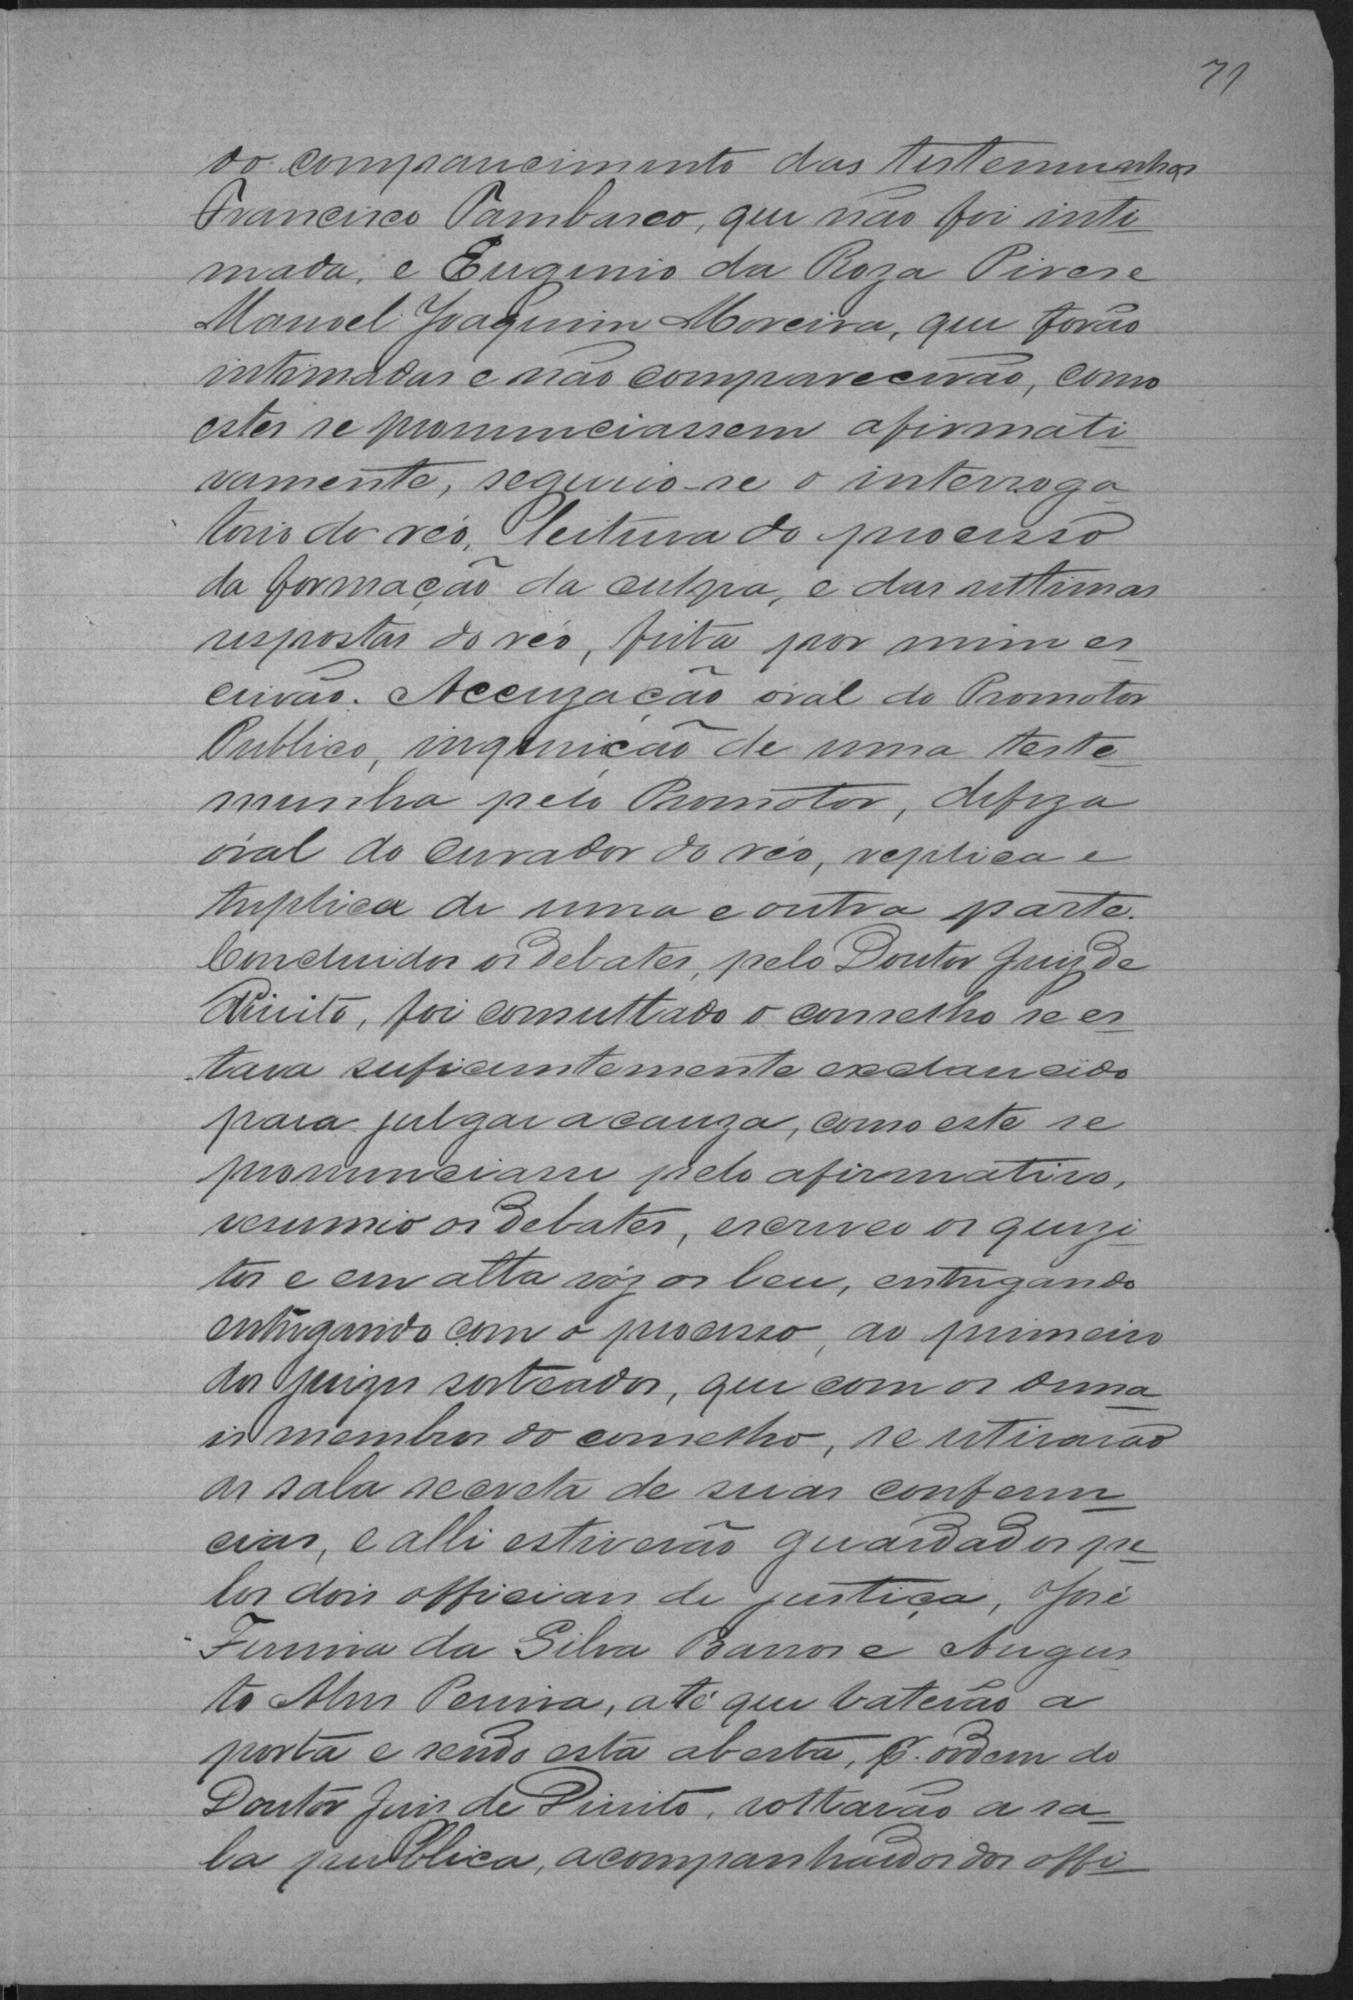 71
do comparecimento das testemunhas
Francisco Pambasco, que não foi inti
mada, e Eugenio da Roza Pires e
Manoel Joaquim Moreira, que forão
intimadas e não comparecerão, como
estes se pronunciassem afirmati
vamente, seguio-se o interroga
torio do réo, leitura do processo
da formação da culpa, e das ultimas
respostas do réo, feita por mim es
crivão. Accuzação oral do Promotor
Publico, inquirição de uma teste
munha pelo Promotor, defeza
oral do curador do réo, replica e
treplica de uma e outra parte.
Concluidos os debates, pelo Doutor Juiz de
Direito, foi consultado o conselho se es
tava suficientemente exclarecido
para julgar a cauza, como este se
pronunciasse pelo afirmativo,
resumio os debates, escreveo os quizi
tos e em alta vóz os leu, entregando
entregando com o processo, ao primeiro
dos juizes sorteados, que com os dema
is membros do conselho, se retirarão
as sala secreta de suas conferen
cias, e alli estiverão guardados pe
los dois officiais de justiça, José
Ferreira da Silva Barros e Augus
to Alves Pereira, até que baterão a
porta e sendo esta aberta, pr. ordem do
Doutor Juis de Direito, voltarão a sa
la publica, acompanhados dos offi